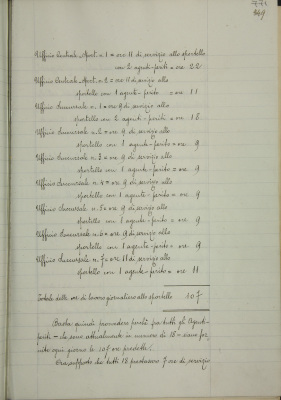 349
Ufficio Centrale, Sport. n. 1 = ore 11 di servizio allo sportello
con 2 agenti-periti = ore 22
Ufficio Centrale, Sport. n. 2 = ore 11 di servizio allo
sportello con 1 agente-perito = ore 11
Ufficio Succursale n. 1 = ore 9 di servizio allo
sportello con 2 agenti-periti = ore 18
Ufficio Succursale n. 2 = ore 9 di servizio allo
sportello con 1 agente-perito = ore 9
Ufficio Succursale n. 3 = ore 9 di servizio allo
sportello con 1 agente-perito = ore 9
Ufficio Succursale n. 4 = ore 9 di servizio allo
sportello con 1 agente-perito = ore 9
Ufficio Succursale n. 5 = ore 9 di servizio allo
sportello con 1 agente-perito = ore 9
Ufficio Succursale n. 6 = ore 9 di servizio allo
sportello con 1 agente-perito = ore 9
Ufficio Succursale n. 7 = ore 11 di servizio allo
sportello con 1 agente-perito = ore 11
Totale delle ore di lavoro giornaliero allo sportello 107
Basta quindi provvedere perchè fra tutti gli Agenti-
periti - che sono attualmente in numero di 18 - siano for-
nite ogni giorno le 107 ore predette.
Ora supposto che tutti 18 prestino 7 ore di servizio